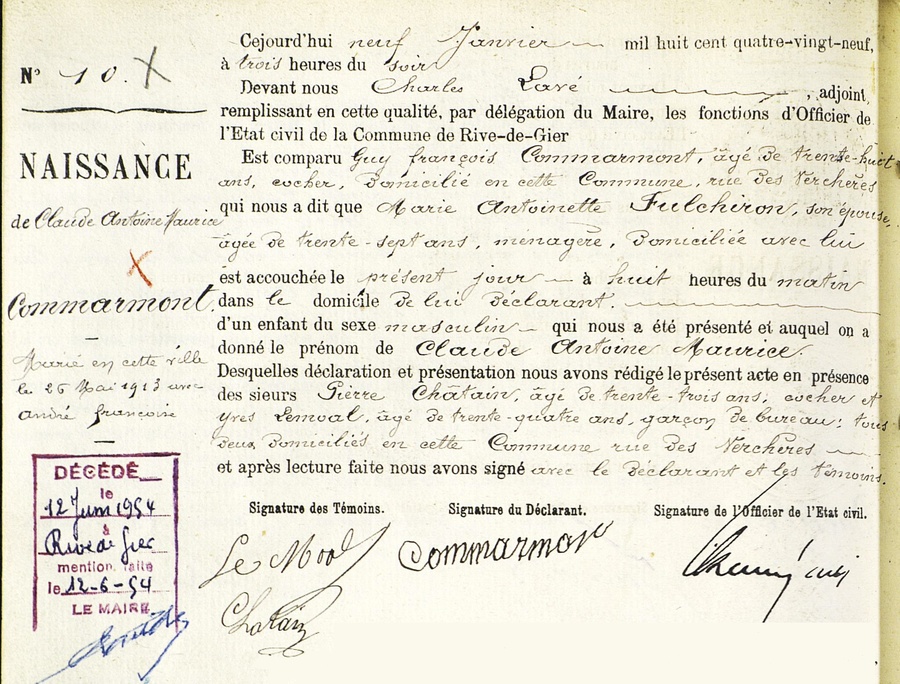 N° 10.
NAISSANCE
de Claude Antoine Maurice
Commarmont.
Marié en cette ville
le 26 Mai 1913 avec
andré françoise
DÉCÉDÉ
le
12 Juin 1954
à
Rive de Gier
mention faite
le 12-6-54
LE MAIRE
Cejourd'hui neuf Janvier mil huit cent quatre-vingt-neuf,
à trois heures du soir
Devant nous Charles Lavé, adjoint,
remplissant en cette qualité, par délégation du Maire, les fonctions d'Officier de
l'Etat civil de la Commune de Rive-de-Gier
Est comparu Guy françois Commarmont, âgé de trente-huit
ans, cocher, domicilié en cette Commune, rue des Verchères
qui nous a dit que Marie Antoinette Fulchiron, son épouse,
âgée de trente-sept ans, ménagère, domiciliée avec lui
est accouchée le présent jour à huit heures du matin
dans le domicile de lui déclarant.
d'un enfant du sexe masculin qui nous a été présenté et auquel on a
donné le prénom de Claude Antoine Maurice.
Desquelles déclaration et présentation nous avons rédigé le présent acte en présence
des sieurs Pierre Châtain, âgé de trente-trois ans, cocher et
yves Lemoal, âgé de trente-quatre ans, garçon de bureau; tous
deux domiciliés en cette Commune rue des Verchères
et après lecture faite nous avons signé avec le déclarant et les témoins.
Signature des Témoins. Signature du Déclarant. Signature de l'Officier de l'Etat civil.
Le Moal Commarmont
Chatain